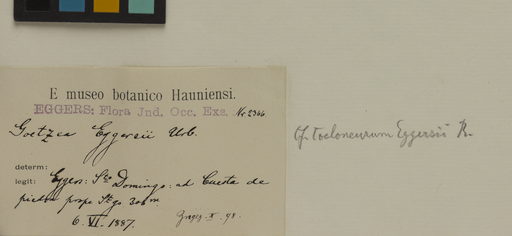 E museo botanico Hauniensi.
EGGERS: Flora Ind. Occ. Exs. Nr. 2366
Goetzea Eggersii Urb.
cf. Coeloneurum Eggersii R.
determ:
legit: Eggers: Sto Domingo: ad Cuesta de
piedra prope Stgo 300 m.
6. VI. 1887.